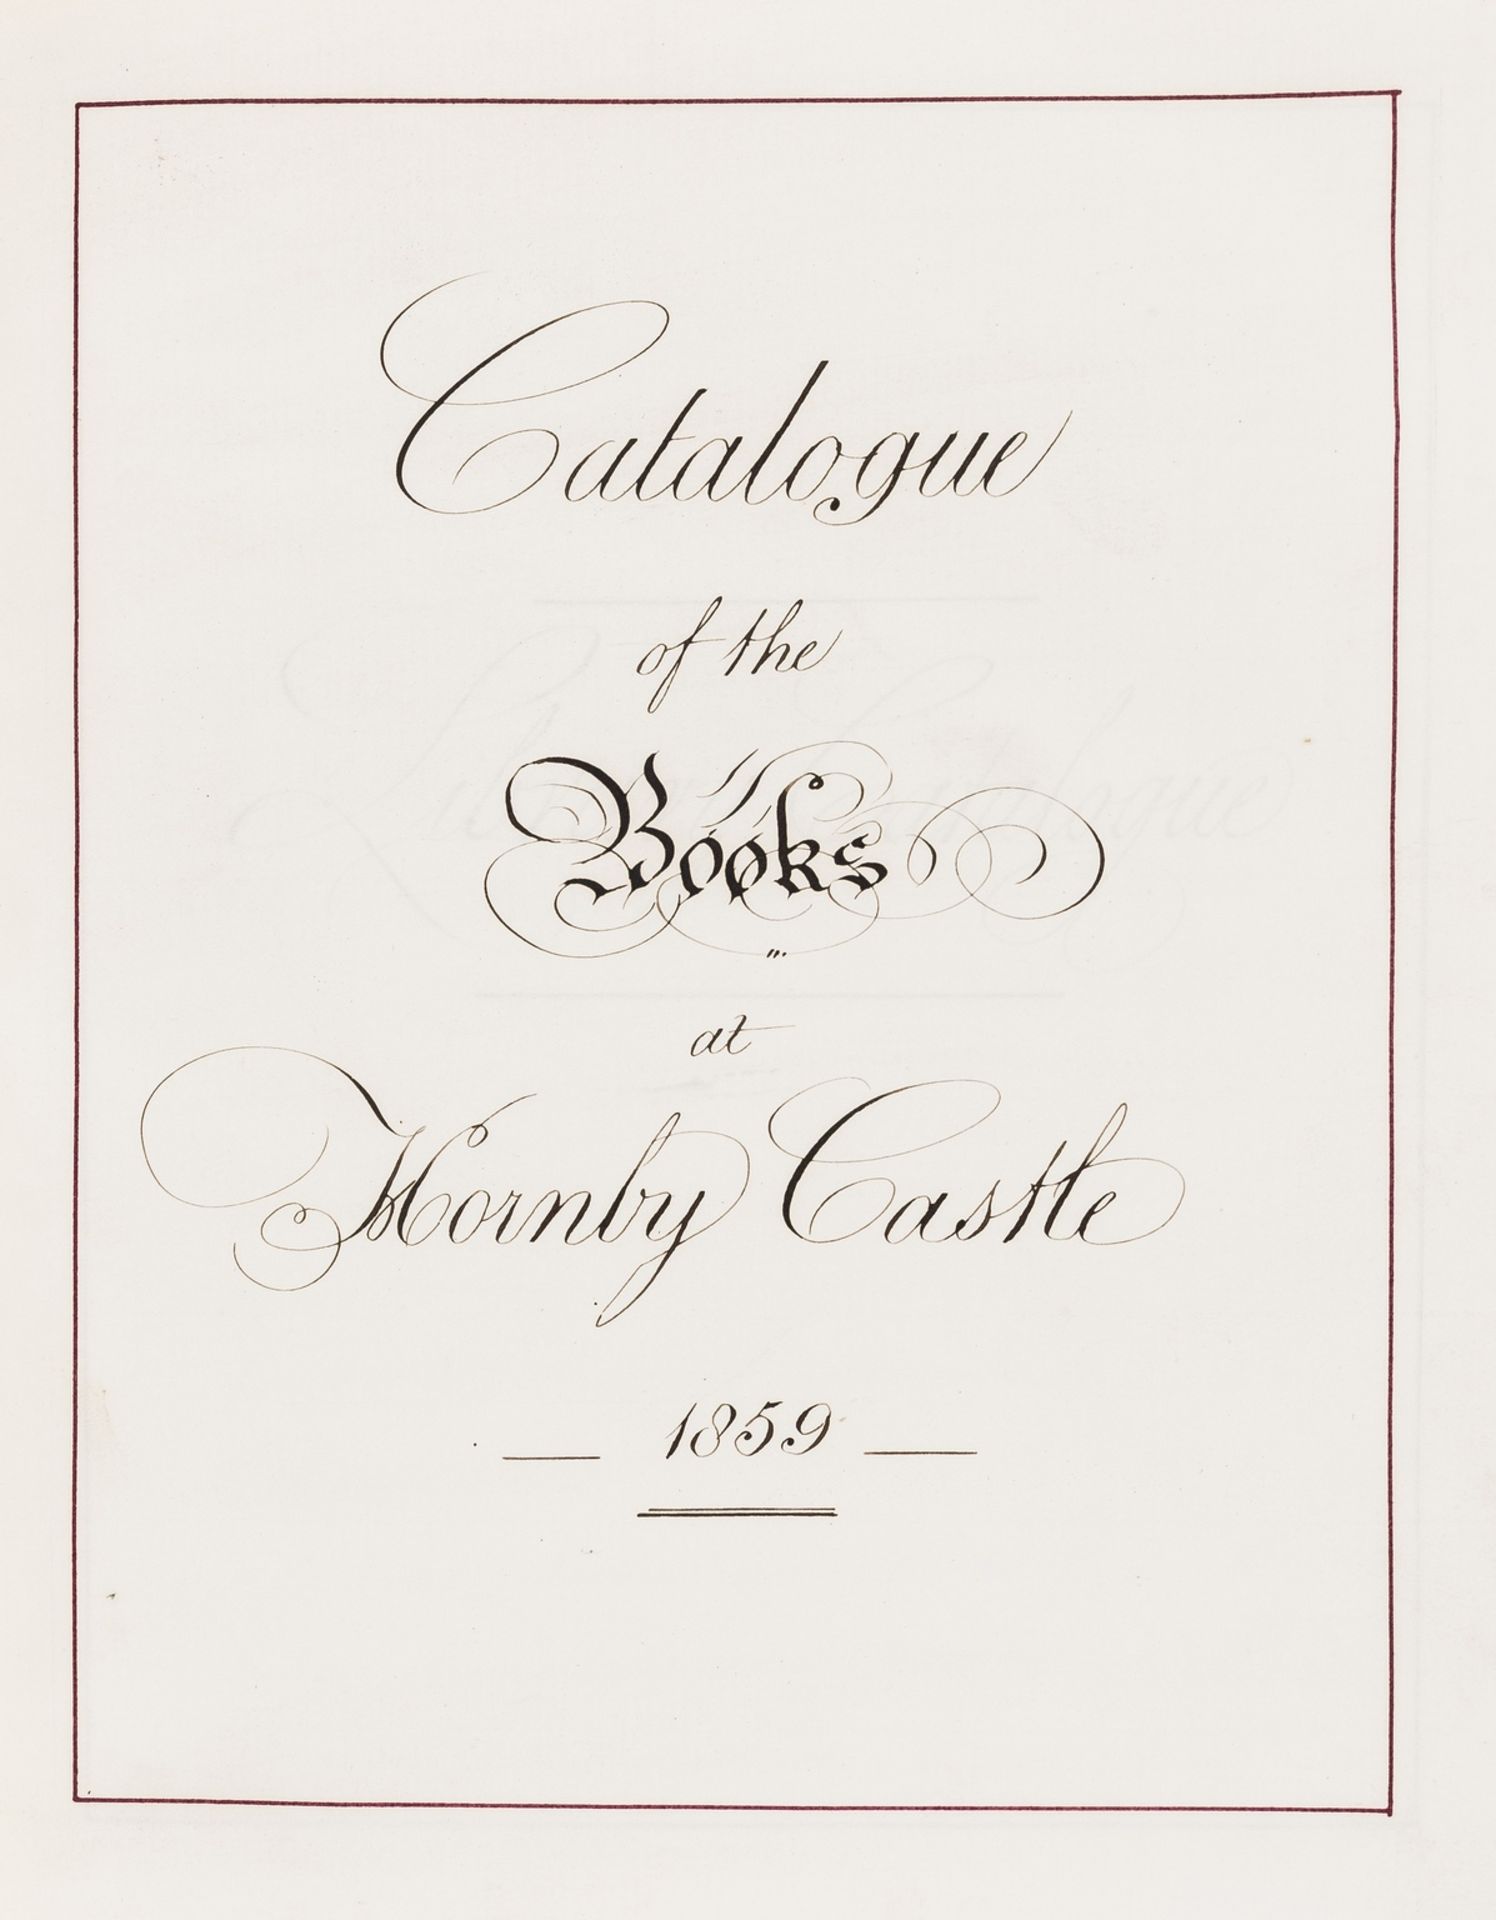 Catalogue
of the
Books
at
Hornby Castle
1859